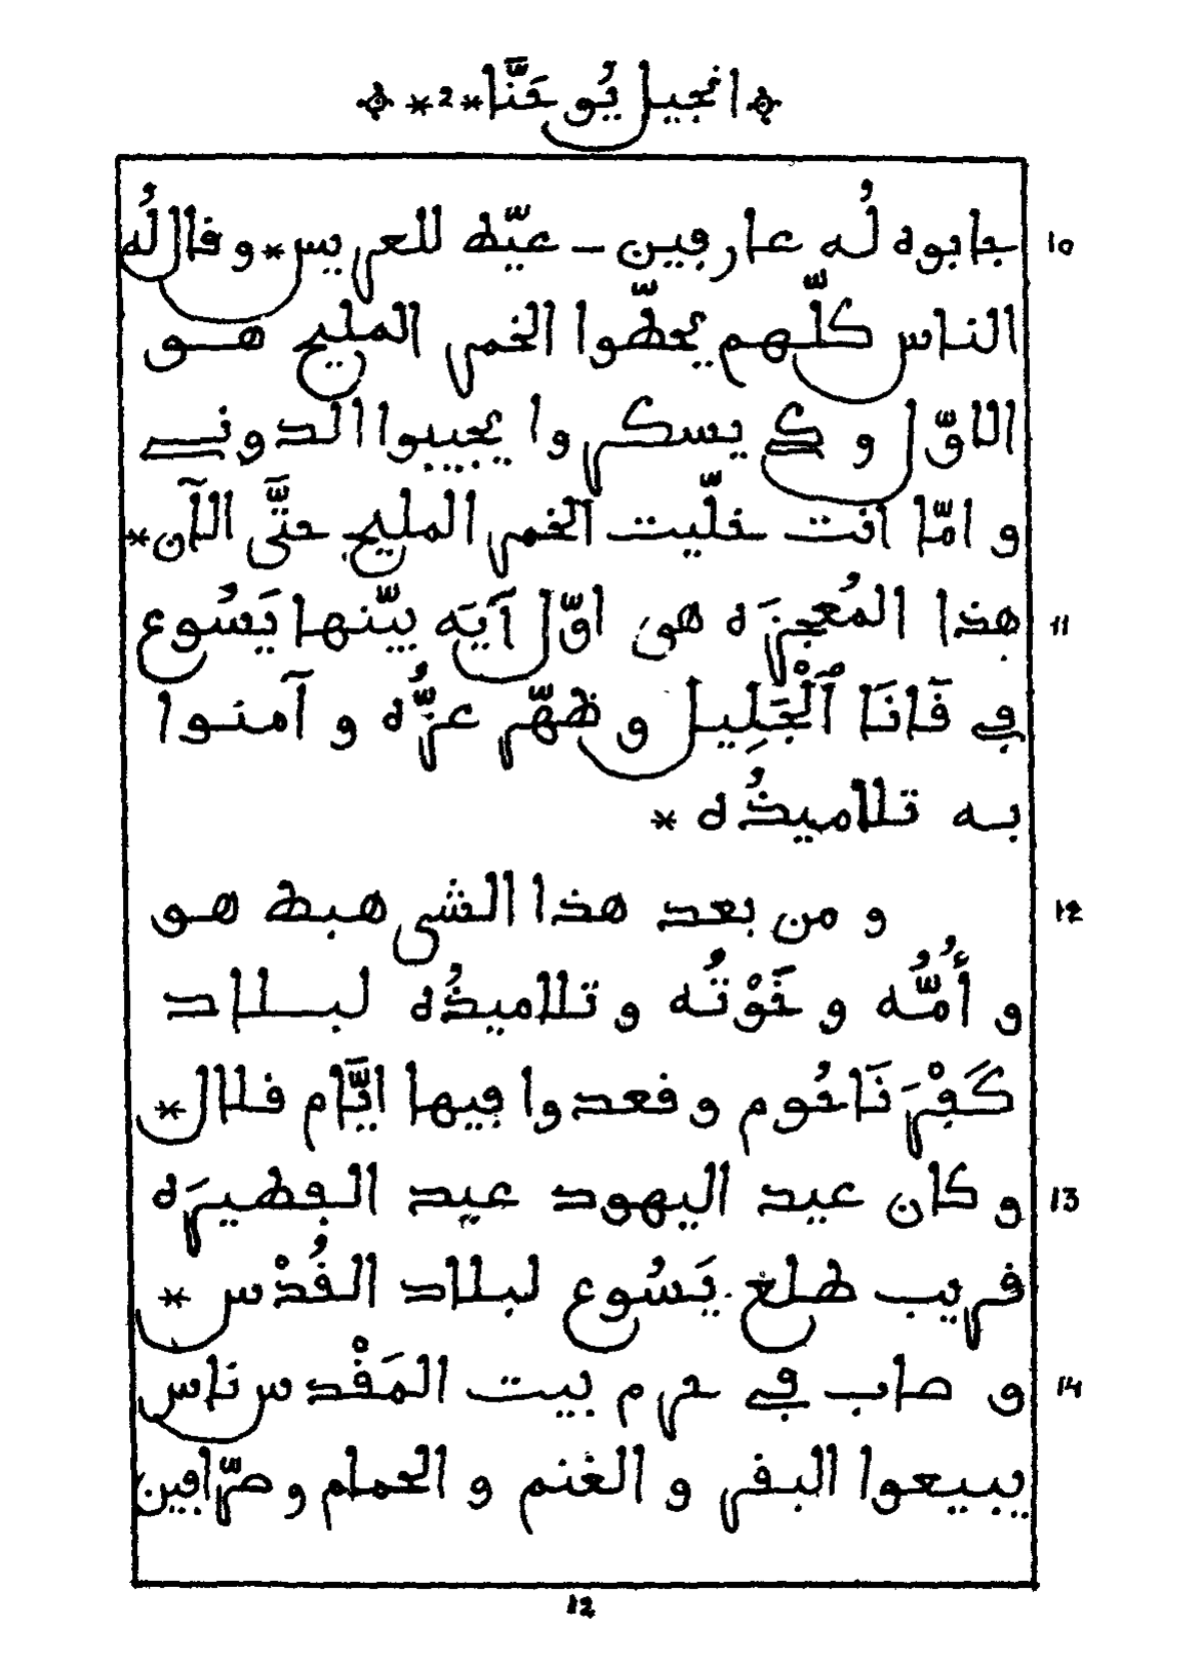 انجيل يُوحَنَّا *2*
10 جابوه لُه عارفين – عيّط للعريس * و قال لُه
الناس كلّهم يحطّوا الخمر المليح هو
الاوّل و كي يسكروا يجيبوا الدوني
و امّا انت خلّيت الخمر المليح حتَّى الآن *
11 هذا المُعجزَه هي اوّل آيَه بيّنها يَسُوع
في قَانَا ٱلْجَلِيل و ظهّر عزُّه و آمنوا
به تلاميذُه *
12 و من بعد هذا الشي هبط هو
و أُمُّه و خَوْتُه و تلاميذُه لبلاد
كَفْرَنَاحُوم و قعدوا فيها ايَّام قلال *
13 و كان عيد اليهود عيد الفطيرَه
قريب طلع يَسُوع لبلاد القُدْس *
14 و صاب في حرم بيت المَقْدس ناس
يبيعوا البقر و الغنم و الحمام و صرّافين
12